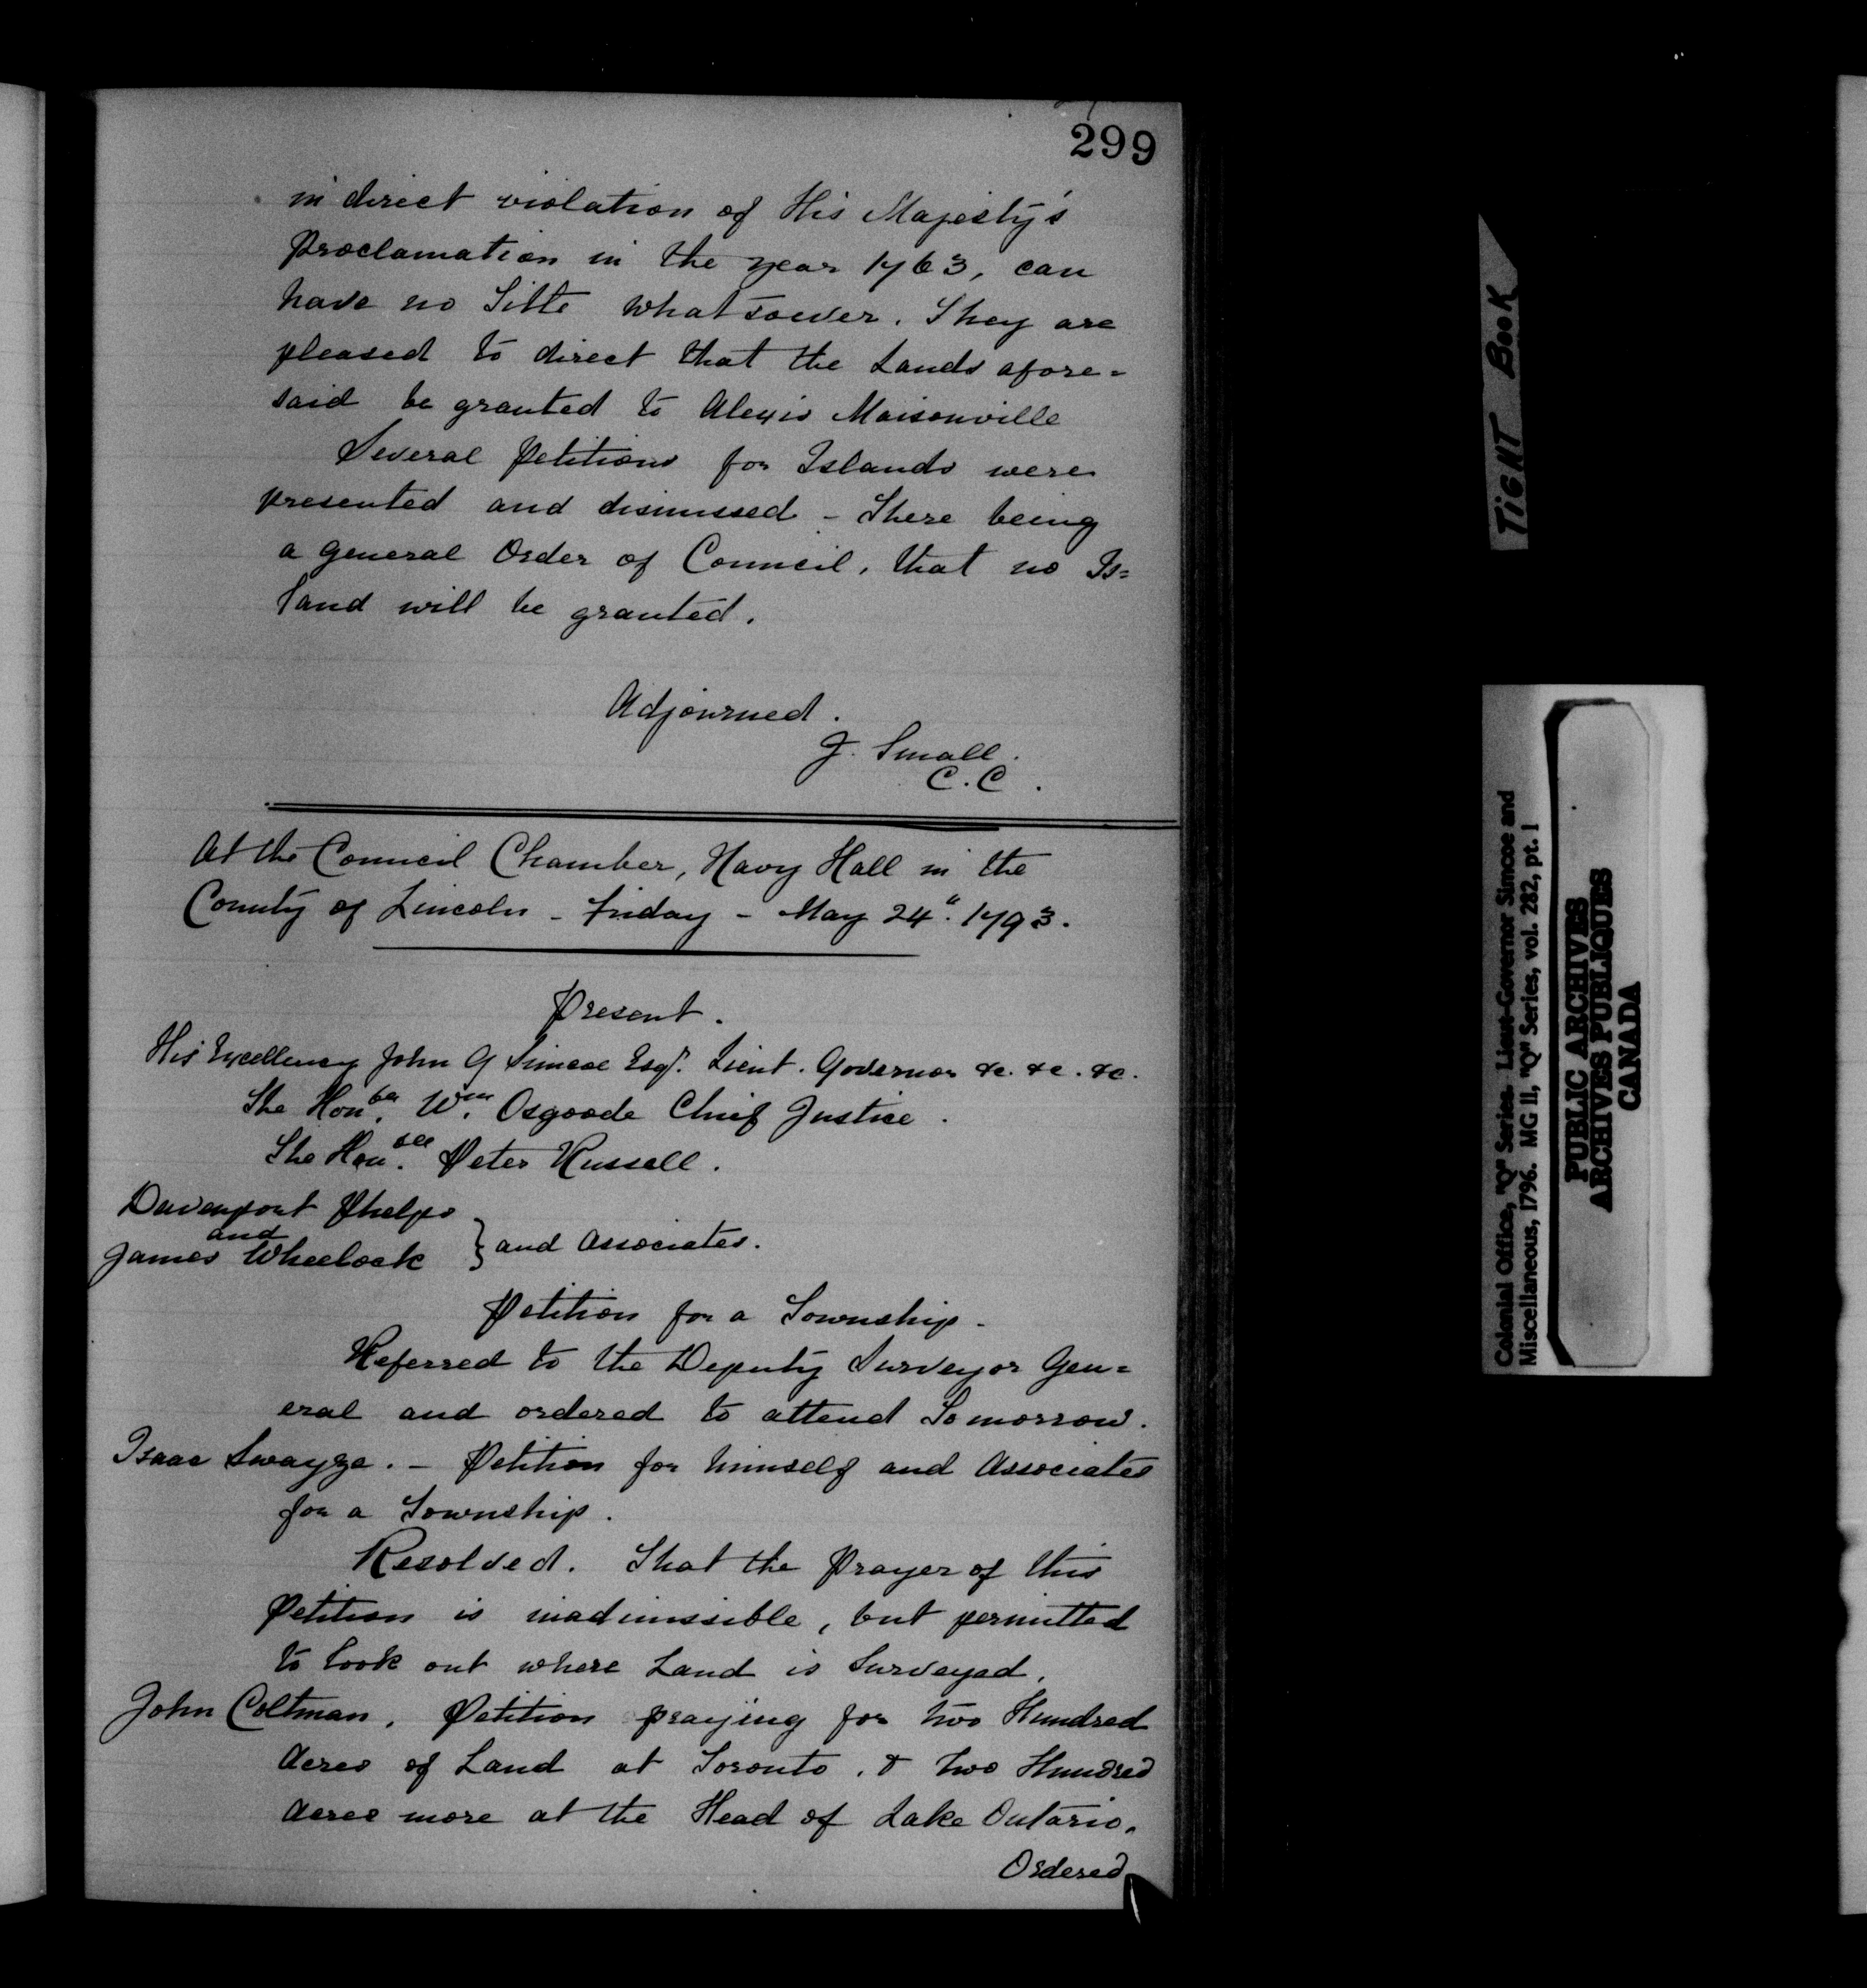 299
in direct violation of His Majesty's
Proclamation in the year 1763, can
have no Title whatsoever. They are
pleased to direct that the Lands afore=
said be granted to Alexis Maisonville
Several Petitions for Islands were
presented and dismissed - There being
a general Order of Council, that no Is=
land will be granted.
Adjourned.
J. Small.
C.C.
At the Council Chamber, Navy Hall in the
County of Lincoln - Friday - May 24". 1793.
Present.
His Excellency John G Simcoe Esqr. Lieut. Governor &c. &c. &c.
The Honble. Wm. Osgoode Chief Justice.
The Honble. Peter Russell.
Davenport Phelps
and
James Wheelock } and Associates.
Petition for a Township.
Referred to the Deputy Surveyor Gen=
eral and ordered to attend Tomorrow.
Isaac Swayze. - Petition for himself and Associates
for a Township.
Resolved. That the Prayer of this
Petition is inadmissible, but permitted
to look out where Land is Surveyed.
John Coltman. Petition praying for two Hundred
Acres of Land at Toronto, & two Hundred
Acres more at the Head of Lake Ontario.
Ordered
TIGHT BOOK
Colonial Office, "Q" Series. Lieut-Governor Simcoe and
Miscellaneous, 1796. MG 11, "Q" Series, vol. 282, pt. 1
PUBLIC ARCHIVES
ARCHIVES PUBLIQUES
CANADA